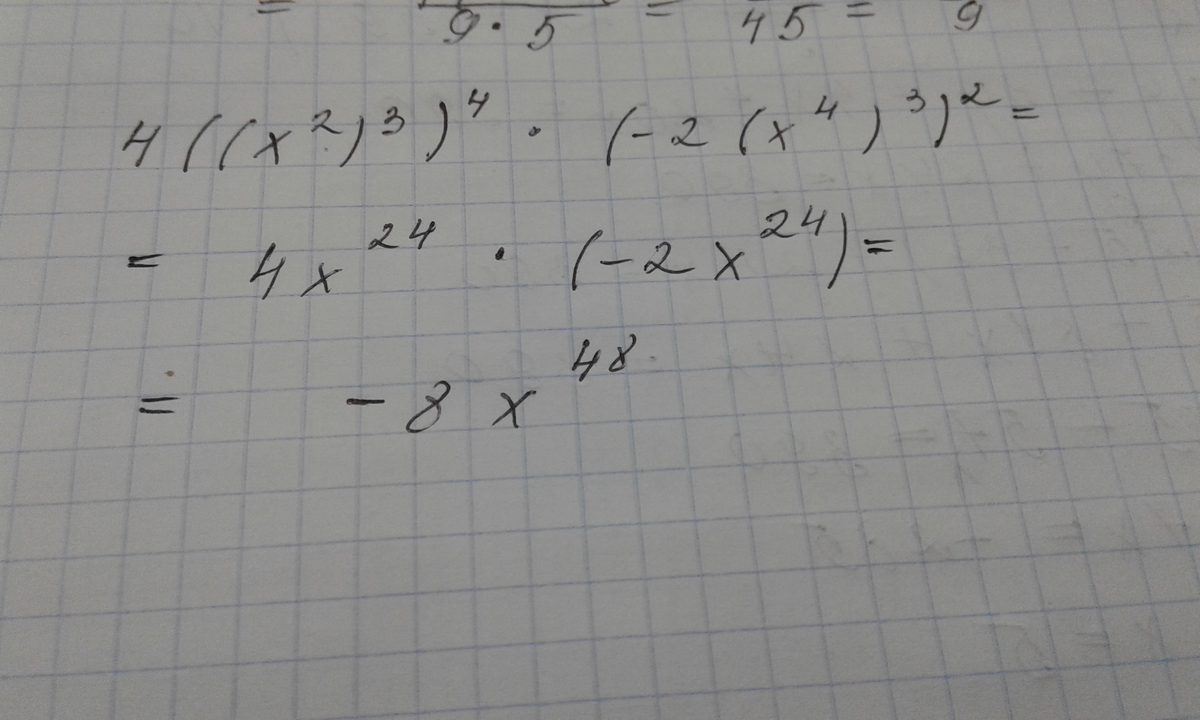 = 9 · 5 = 45 = 9
4((x²)³)⁴ · (-2(x⁴)³)² =
= 4x²⁴ · (-2x²⁴) =
= -8x⁴⁸